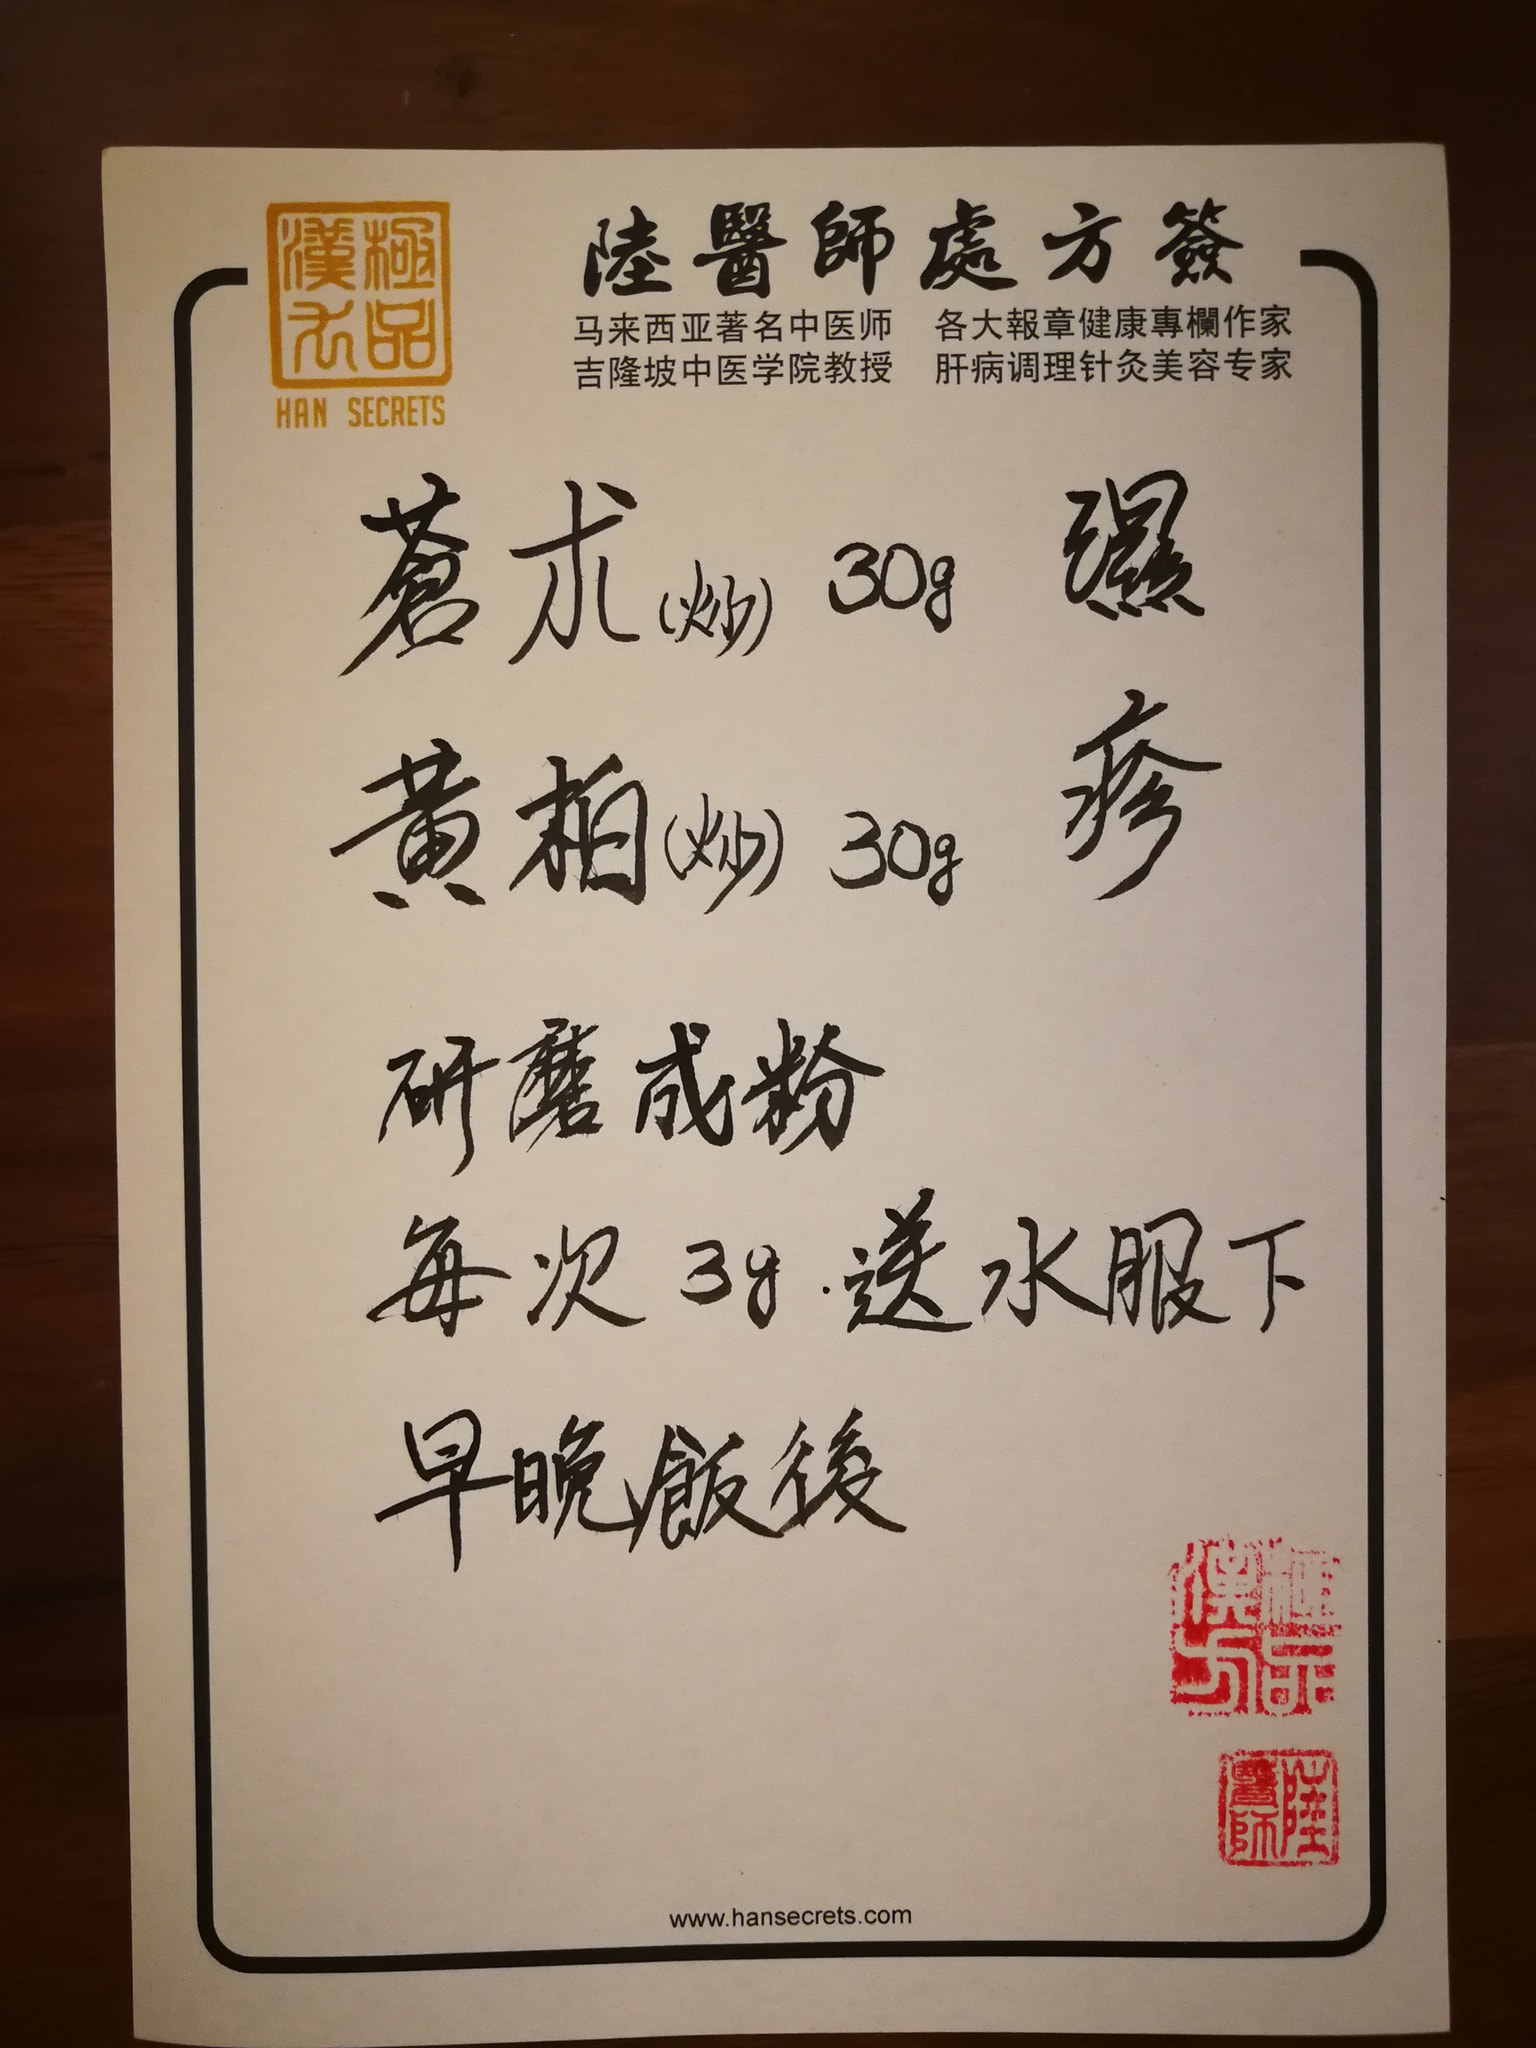 極品漢方
HAN SECRETS
陸醫師處方簽
马来西亚著名中医师 各大報章健康專欄作家
吉隆坡中医学院教授 肝病调理针灸美容专家
蒼朮(炒) 30g
黃柏(炒) 30g
濕疹
研磨成粉
每次 3g.送水服下
早晚飯後
極品漢方
陸醫師
www.hansecrets.com